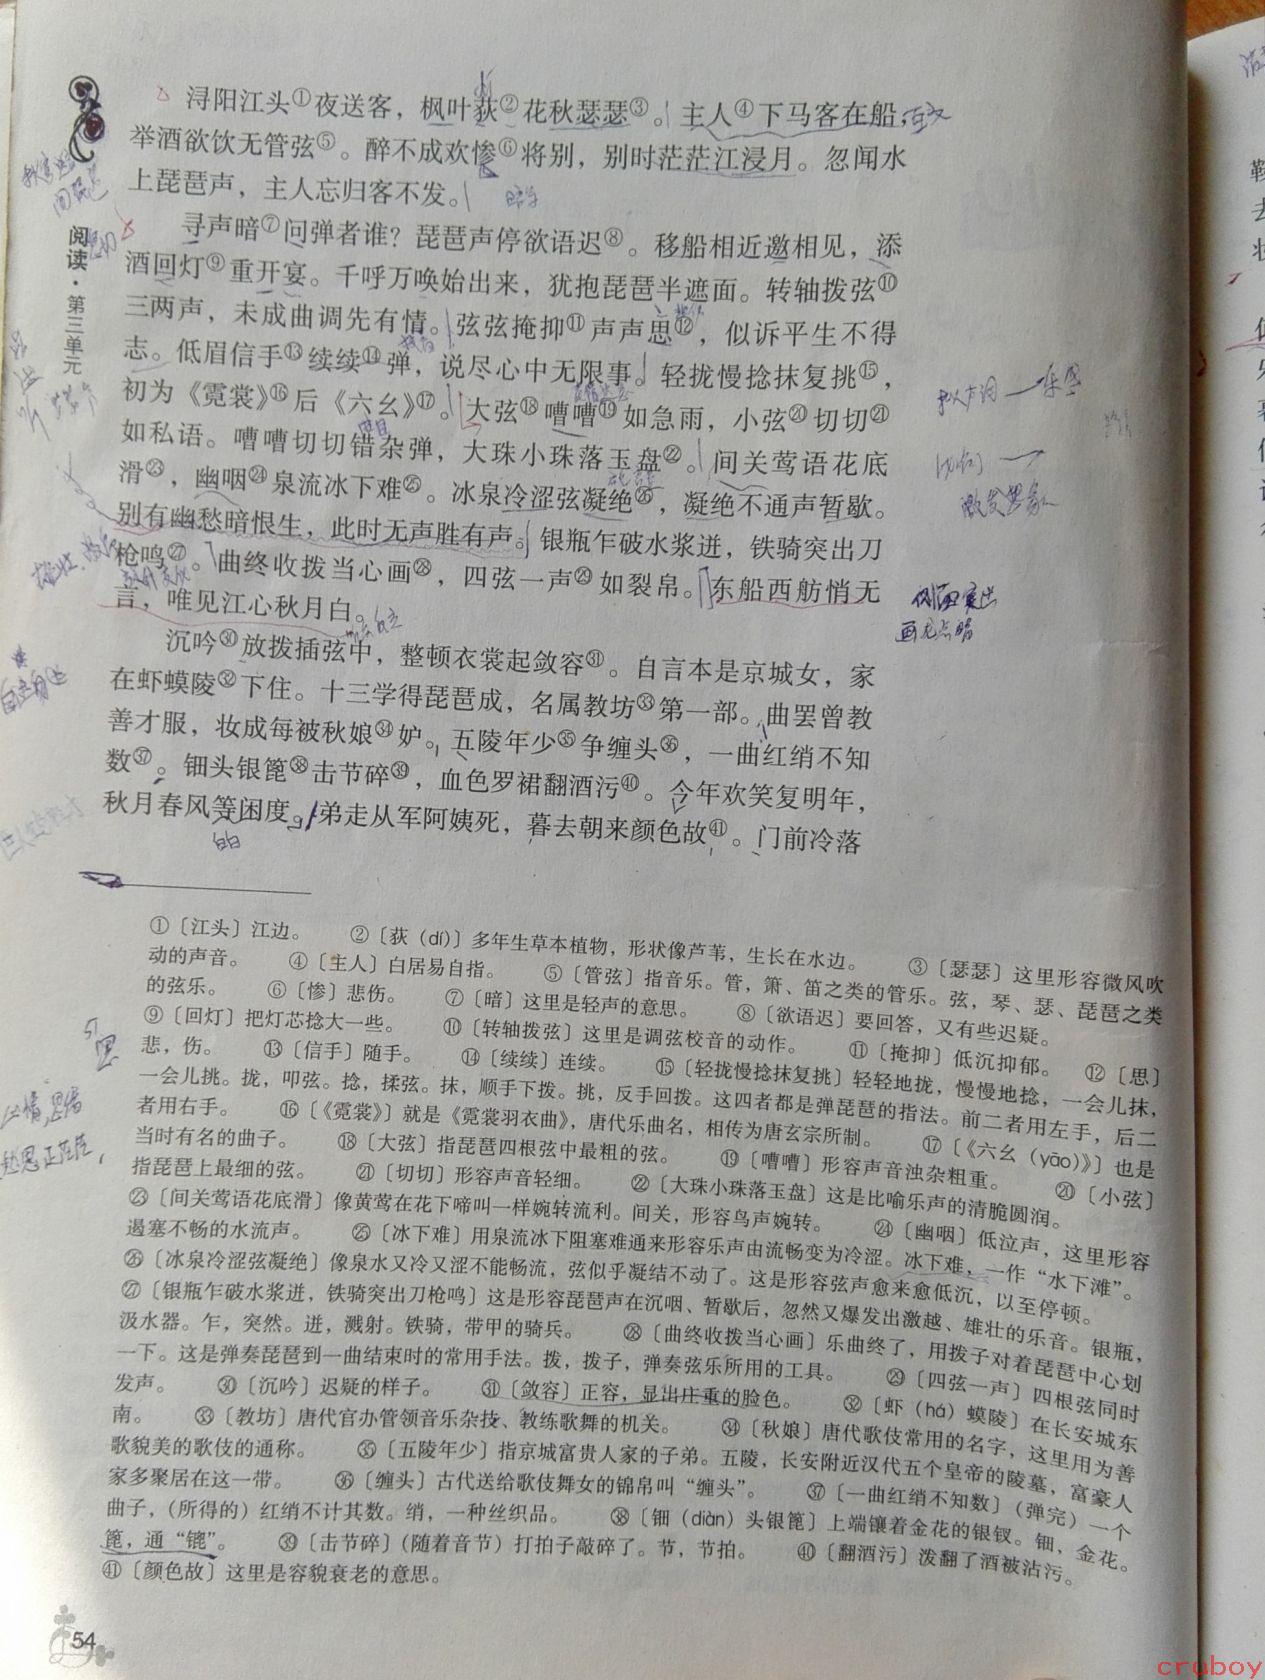 浔阳江头①夜送客，枫叶荻②花秋瑟瑟③。主人④下马客在船，
举酒欲饮无管弦⑤。醉不成欢惨⑥将别，别时茫茫江浸月。忽闻水
上琵琶声，主人忘归客不发。
寻声暗⑦问弹者谁？琵琶声停欲语迟⑧。移船相近邀相见，添
酒回灯⑨重开宴。千呼万唤始出来，犹抱琵琶半遮面。转轴拨弦⑩
三两声，未成曲调先有情。弦弦掩抑⑪声声思⑫，似诉平生不得
志。低眉信手⑬续续⑭弹，说尽心中无限事。轻拢慢捻抹复挑⑮，
初为《霓裳》⑯后《六幺》⑰。大弦⑱嘈嘈⑲如急雨，小弦⑳切切㉑
如私语。嘈嘈切切错杂弹，大珠小珠落玉盘㉒。间关莺语花底
滑㉓，幽咽㉔泉流冰下难㉕。冰泉冷涩弦凝绝㉖，凝绝不通声暂歇。
别有幽愁暗恨生，此时无声胜有声。银瓶乍破水浆迸，铁骑突出刀
枪鸣㉗。曲终收拨当心画㉘，四弦一声㉙如裂帛。东船西舫悄无
言，唯见江心秋月白。
沉吟㉚放拨插弦中，整顿衣裳起敛容㉛。自言本是京城女，家
在虾蟆陵㉜下住。十三学得琵琶成，名属教坊㉝第一部。曲罢曾教
善才服，妆成每被秋娘㉞妒。五陵年少㉟争缠头㊱，一曲红绡不知
数㊲。钿头银篦㊳击节碎㊴，血色罗裙翻酒污㊵。今年欢笑复明年，
秋月春风等闲度。弟走从军阿姨死，暮去朝来颜色故㊶。门前冷落
阅读·第三单元
互文
拟声词
比喻
激发想象
侧面突出
画龙点睛
①〔江头〕江边。 ②〔荻（dí）〕多年生草本植物，形状像芦苇，生长在水边。 ③〔瑟瑟〕这里形容微风吹
动的声音。 ④〔主人〕白居易自指。 ⑤〔管弦〕指音乐。管，箫、笛之类的管乐。弦，琴、瑟、琵琶之类
的弦乐。 ⑥〔惨〕悲伤。 ⑦〔暗〕这里是轻声的意思。 ⑧〔欲语迟〕要回答，又有些迟疑。
⑨〔回灯〕把灯芯捻大一些。 ⑩〔转轴拨弦〕这里是调弦校音的动作。 ⑪〔掩抑〕低沉抑郁。 ⑫〔思〕
悲，伤。 ⑬〔信手〕随手。 ⑭〔续续〕连续。 ⑮〔轻拢慢捻抹复挑〕轻轻地拢，慢慢地捻，一会儿抹，
一会儿挑。拢，叩弦。捻，揉弦。抹，顺手下拨。挑，反手回拨。这四者都是弹琵琶的指法。前二者用左手，后二
者用右手。 ⑯〔《霓裳》〕就是《霓裳羽衣曲》，唐代乐曲名，相传为唐玄宗所制。 ⑰〔《六幺（yāo）》〕也是
当时有名的曲子。 ⑱〔大弦〕指琵琶四根弦中最粗的弦。 ⑲〔嘈嘈〕形容声音浊杂粗重。 ⑳〔小弦〕
指琵琶上最细的弦。 ㉑〔切切〕形容声音轻细。 ㉒〔大珠小珠落玉盘〕这是比喻乐声的清脆圆润。
㉓〔间关莺语花底滑〕像黄莺在花下啼叫一样婉转流利。间关，形容鸟声婉转。 ㉔〔幽咽〕低泣声，这里形容
遏塞不畅的水流声。 ㉕〔冰下难〕用泉流冰下阻塞难通来形容乐声由流畅变为冷涩。冰下难，一作“水下滩”。
㉖〔冰泉冷涩弦凝绝〕像泉水又冷又涩不能畅流，弦似乎凝结不动了。这是形容弦声愈来愈低沉，以至停顿。
㉗〔银瓶乍破水浆迸，铁骑突出刀枪鸣〕这是形容琵琶声在沉咽、暂歇后，忽然又爆发出激越、雄壮的乐音。银瓶，
汲水器。乍，突然。迸，溅射。铁骑，带甲的骑兵。 ㉘〔曲终收拨当心画〕乐曲终了，用拨子对着琵琶中心划
一下。这是弹奏琵琶到一曲结束时的常用手法。拨，拨子，弹奏弦乐所用的工具。 ㉙〔四弦一声〕四根弦同时
发声。 ㉚〔沉吟〕迟疑的样子。 ㉛〔敛容〕正容，显出庄重的脸色。 ㉜〔虾（há）蟆陵〕在长安城东
南。 ㉝〔教坊〕唐代官办管领音乐杂技、教练歌舞的机关。 ㉞〔秋娘〕唐代歌伎常用的名字，这里用为善
歌貌美的歌伎的通称。 ㉟〔五陵年少〕指京城富贵人家的子弟。五陵，长安附近汉代五个皇帝的陵墓，富豪人
家多聚居在这一带。 ㊱〔缠头〕古代送给歌伎舞女的锦帛叫“缠头”。 ㊲〔一曲红绡不知数〕（弹完）一个
曲子，（所得的）红绡不计其数。绡，一种丝织品。 ㊳〔钿（diàn）头银篦〕上端镶着金花的银钗。钿，金花。
篦，通“鎞”。 ㊴〔击节碎〕（随着音节）打拍子敲碎了。节，节拍。 ㊵〔翻酒污〕泼翻了酒被沾污。
㊶〔颜色故〕这里是容貌衰老的意思。
54
cruboy